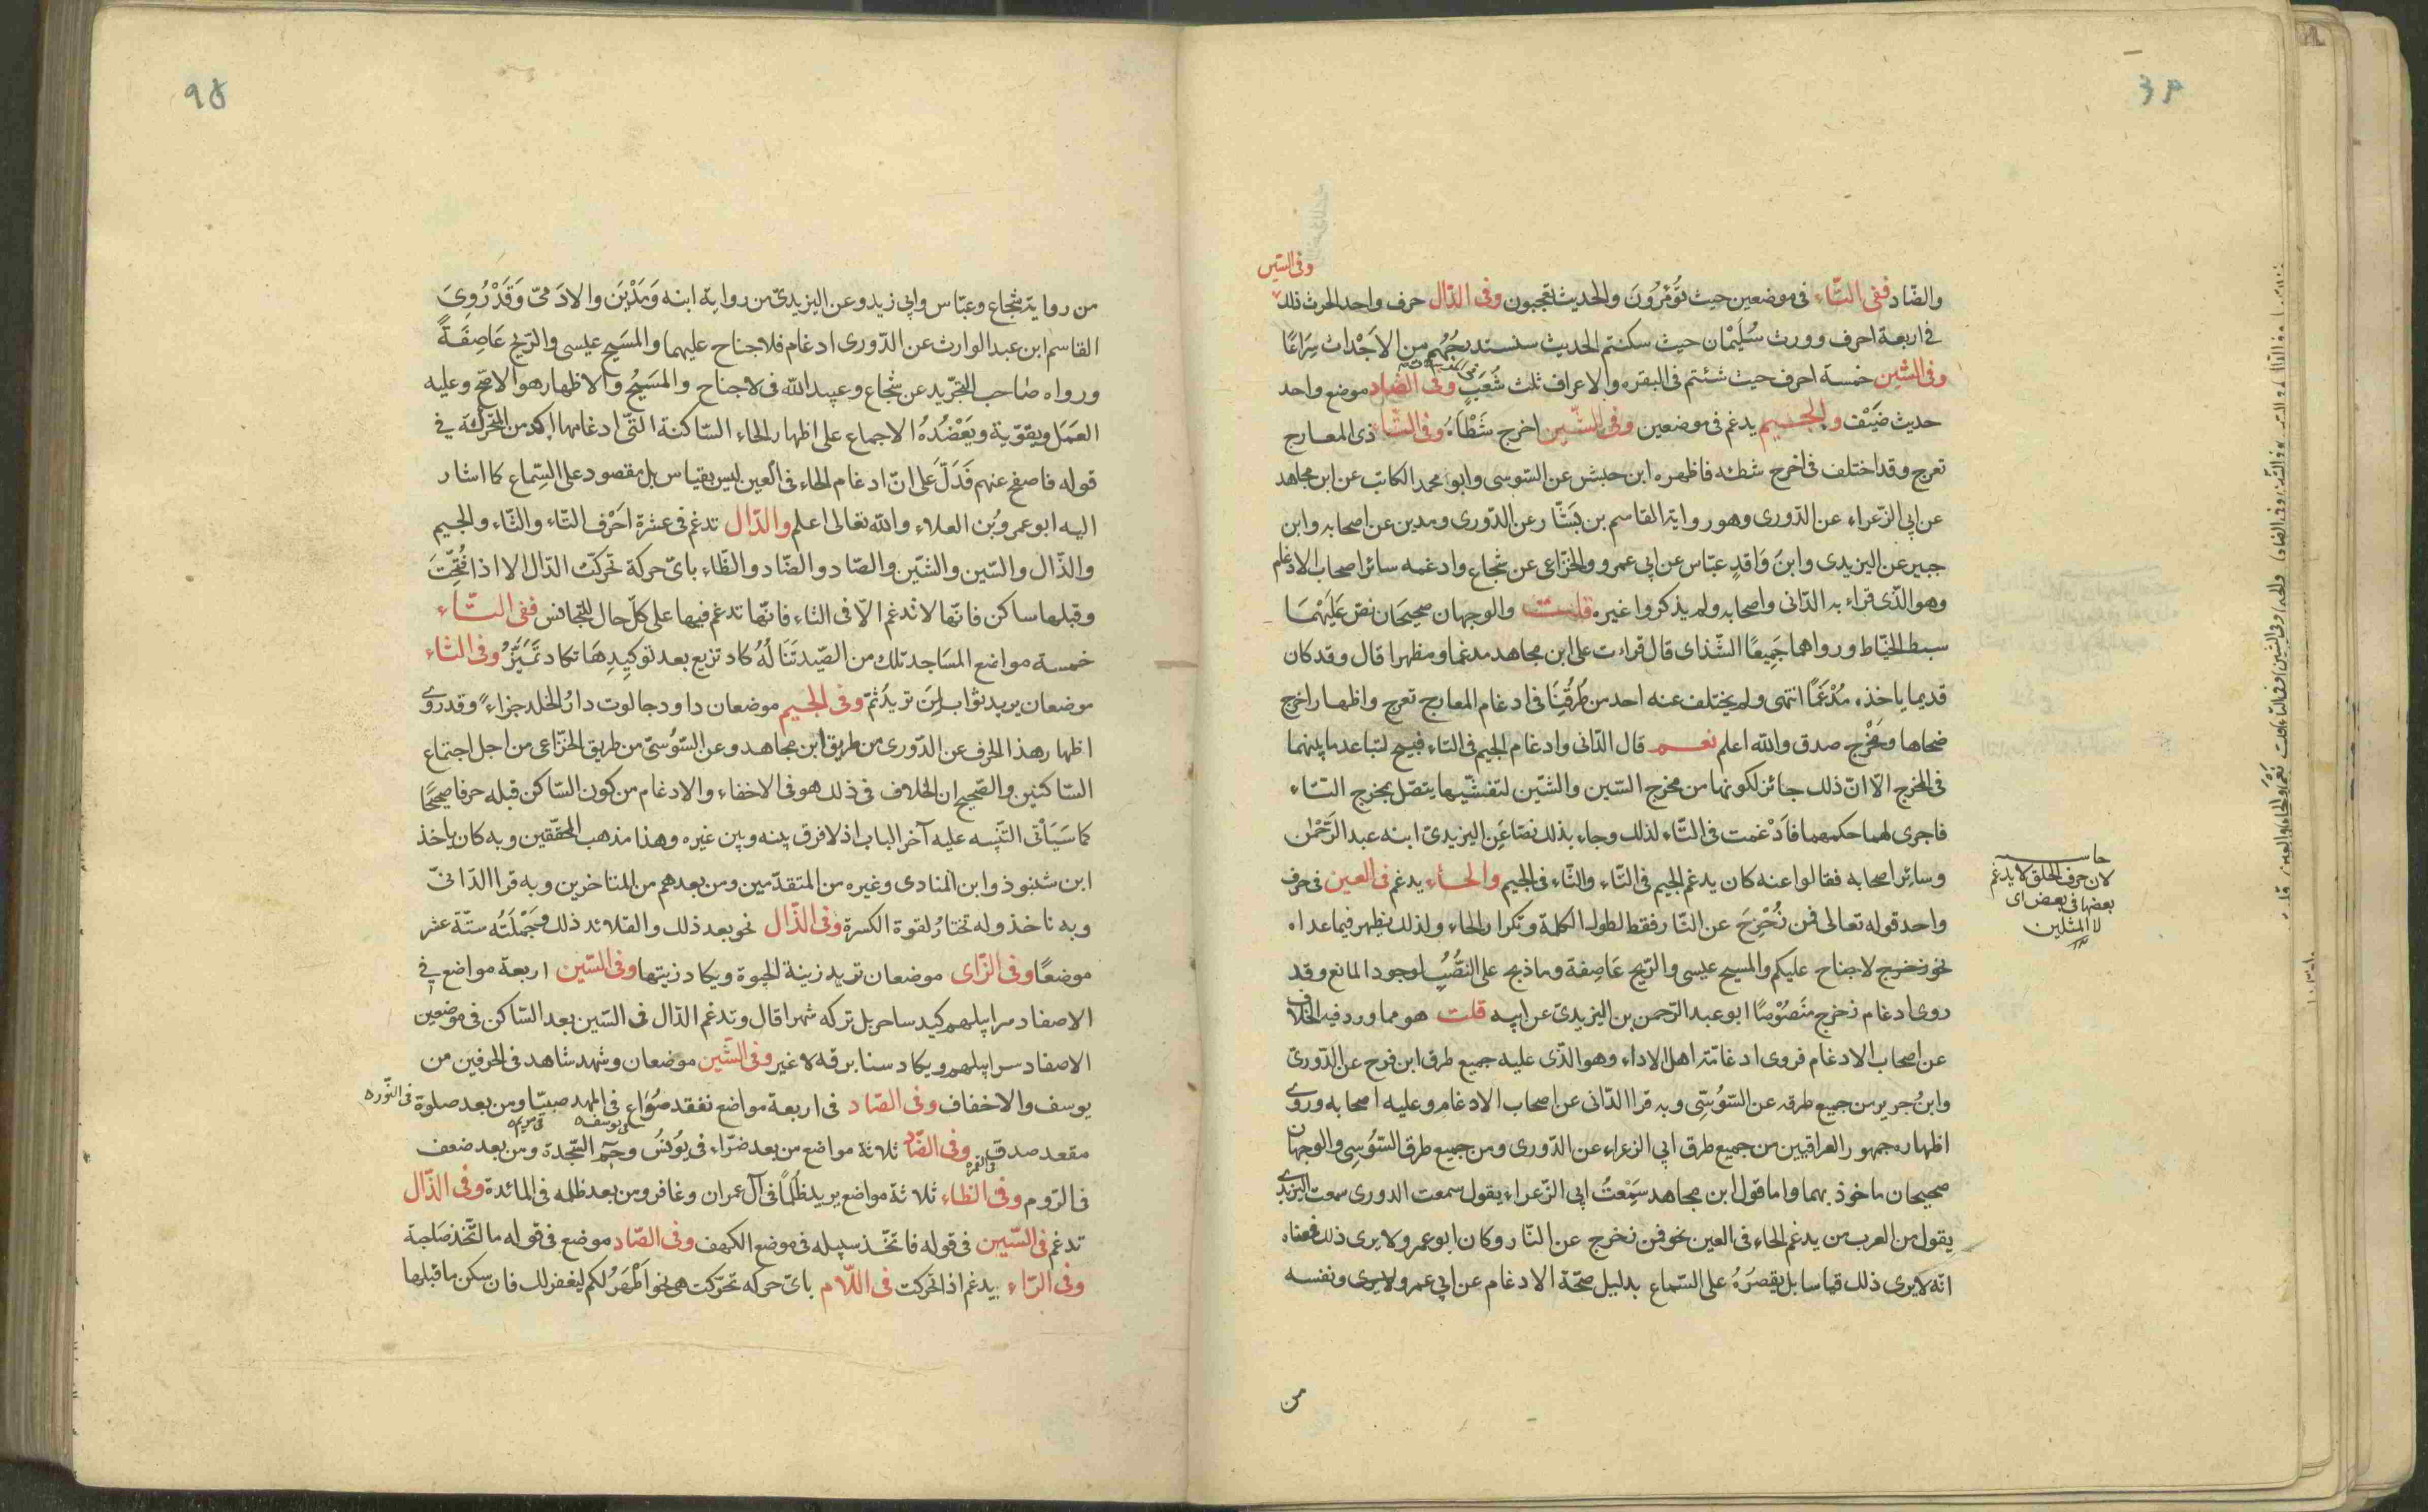 وفى السّين
والضّاد ففى التّاء فى موضعين حيث تُؤمَرُونَ والحديث تعجبون وفى الذّال حرف واحد الحرث ذلك
فى اربعة احرف وورث سُلَيْمان حيث سكنتم الحديث سنستدرجُهُم من الاَجْداث سِرَاعًا
وفى الشّين خمسة احرف حيث شئتم فى البقره والاعراف ثلث شُعَبٍ وفى الضاد موضع واحد
حديث ضَيْف والجيم يدغم فى موضعين وفى الشّين اخرج شَطْأَهُ وفى التّاء ذى المعارج
تعرج وقد اختلف فى اخرج شطئه فاظهره ابن حبش عن السّوسى وابو محمد الكاتب عن ابن مجاهد
عن ابى الزّعراء عن الدّورى وهو رواية القاسم بن بَشّار عن الدّورى ومدين عن اصحابه وابن
جبير عن اليزيدى وابن وَاقدٍ عبّاس عن ابى عمرو والخزّاعى عن شجاع وادغمه سائر اصحاب الادغام
وهو الّذى قراء به الدّانى واصحابه ولم يذكروا غيره قلت والوجهان صحيحان نصّ عَلَيْهمَا
سبط الخيّاط ورواهما جَمِيعًا الشّذاى قال قراءت على ابن مجاهد مدغما ومظهرا قال وقد كان
قديما ياخذه مُدْغَمًا انتهى ولم يختلف عنه احد من طُرُقِنَا فى ادغام المعارج تعرج واظهار اخرج
ضحاها ومَخْرَج صدق والله اعلم نعم قال الدّانى وادغام الجيم فى التاء قبيح لتباعد ما بينهما
فى المخرج الّا انّ ذلك جائز لكونها من مخرج السّين والشّين لتفشّيها يتصّل بمخرج التاء
فاجرى لهما حكمهما فاَدْغمت فى التّاء لذلك وجاء بذلك نصّا عَنِ اليزيدىّ ابنه عبد الرّحْمٰن
وسائر اصحابه فقالوا عنه كان يدغم الجيم فى التّاء والتّاء فى الجيم والحاء يدغم فى العين فى حرف
واحد قوله تعالى فمن زُحْزِحَ عن النّار فقط لطول الكلمة وتكرار الحاء ولذلك يظهر فيما عداه
نحو زحزح لاجناح عليكم والمسيح عيسى والرّيح عَاصِفة وما ذبح على النّصُبُ لوجود المانع وقد
روى ادغام زحزح مَنصُوْصًا ابو عبد الرّحمن بن اليزيدىّ عن ابيه قلت هو مما ورد فيه الخلاف
عن اصحاب الادغام فروى ادغامه اهل الاداء وهو الذّى عليه جميع طرق ابن فرح عن الدّورىّ
وابنُ جرير من جميع طرقه عن السّوُسّى وبه قرا الدّانى عن اصحاب الادغام وعليه اصحابه وروى
اظهاره جمهور العراقيين من جميع طرق ابى الزعراء عن الدّورى ومن جميع طرق السّوُسِى والوجهان
صحيحان ماخوذ بهما واما قول ابن مجاهد سَمِعْتُ ابى الزّعراء يقول سمعت الدورى سمعت اليزيدى
يقول من العرب من يدغم الحاء فى العين نحو فمن زحزح عن النّار وكان ابو عمرو لا يرى ذلك فمعناه
انّه لا يرى ذلك قياسا بل يقصرُهُ على السّماع بدليل صحّة الادغام عن ابى عمرو ونفسه
من
حاشيه
لان حرف الحلق لا يدغم
بعضها فى بعض اى
لا المثلين
من رواية شجاع وعبّاس وابى زيد وعن اليزيدىّ من رواية ابنه وَمَدْيَن والادَمىّ وَقَدْ رُوِىَ
القاسم ابن عبد الوارث عن الدّورى ادغام فلا جناح عليهما والمسَيح عيسى والرّيح عَاصِفَةً
ورواه صَاحب التجّريد عن شجاع وعبيد الله فى لاجناح والمسَيحُ والاظهار هو الاصّح وعليه
العَمَل ويقوّية ويَعْضُدُهُ الاجماع على اظهار الحاء السّاكنة التّى ادغامها اكد من المتحرّكة فى
قوله فاصفح عنهم فَدَلَّ على انّ ادغام الحاء فى العين ليس بقياس بل مقصود على السّماع كما اشار
اليه ابو عمرو بُن العلاء والله تعالى اعلم والدّال تدغم فى عشرة اَحْرُف التّاء والثّاء والجيم
والذّال والسّين والشّين والصّاد والضّاد والظّاء باىّ حركة تحركّت الدّال الا اذا فُتِحْتَ
وقبلها ساكن فانّها لا تُدغم الّا فى التاء فانّها تدغم فيها على كلّ حال للتجّانس ففى التّاء
خمسة مواضع المسَاجد تلك من الصّيد تَنَالُهُ كاد تزيع بعد توكِيدِهَا تكاد تَمَيّزُ وفى الثاء
موضعان يريد ثواب لِمَن تريد ثمّ وفى الجيم موضعان داود جالوت دارُ الخلد جزاءً وقد روى
اظهار هذا الحرف عن الدّورى من طريق ابن مجاهد وعن السّوُسىّ من طريق الخزّاعى من اجل اجتماع
السّاكنين والصّحيح ان الخلاف فى ذلك هو فى الاخفاء والادغام من كون السّاكن قبله حرفا صحيحًا
كما سَيَاْتى التّنبيه عليه آخر الباب اذ لا فرق بينه وبين غيره وهذا مذهب المحقّقين وبه كان ياخذ
ابن شنبوذ وابن المنادى وغيره من المتقدّمين ومن بعدهم من المتاخرين وبه قرا الدّانىّ
وبه ناخذ وله تختارُ لقوة الكسرة وفى الذّال نحو بعد ذلك والقلائد ذلك وجُمْلَتُه ستّة عشر
موضعًا وفى الزّاى موضعان تريد زينة الحيوة ويكاد زيتها وفى السّين اربعة مواضع فى
الاصفاد سرابيلهم كيد ساحر بل تركه شهرا قال وتدغم الدّال فى السّين بعد السّاكن فى موضعين
الاصفاد سرابيلهم ويكاد سنا برقه لا غير وفى الشّين موضعان وشهد شاهد فى الحرفين من
يوسف والاخفاف وفى الصّاد فى اربعة مواضع نفقد صُوَاع فى المهد صبيّا ومن بعد صلوة فى النّوره
فى يوسف فى مريم
مقعد صدق وفى الضّاد ثلاثة مواضع من بعد ضرّاء فى يوُنسُ وحم السّجدة ومن بعد ضعف
فى القمره
فى الرّوم وفى الظاء ثلاثة مواضع يريد ظُلمًا فى آل عمران وغافر ومن بعد ظلمه فى المائدة وفى الذّال
تدغم فى السّين فى قوله فاتّخذ سبيله فى موضع الكهف وفى الصّاد موضع فى قوله ما اتّخذ صَاحبة
وفى الرّاء يدغم اذا تحركت فى اللّام باىّ حركه تحرّكت هى نحو اَطْهَرُ لكم ليغفر لك فان سكن ما قبلها